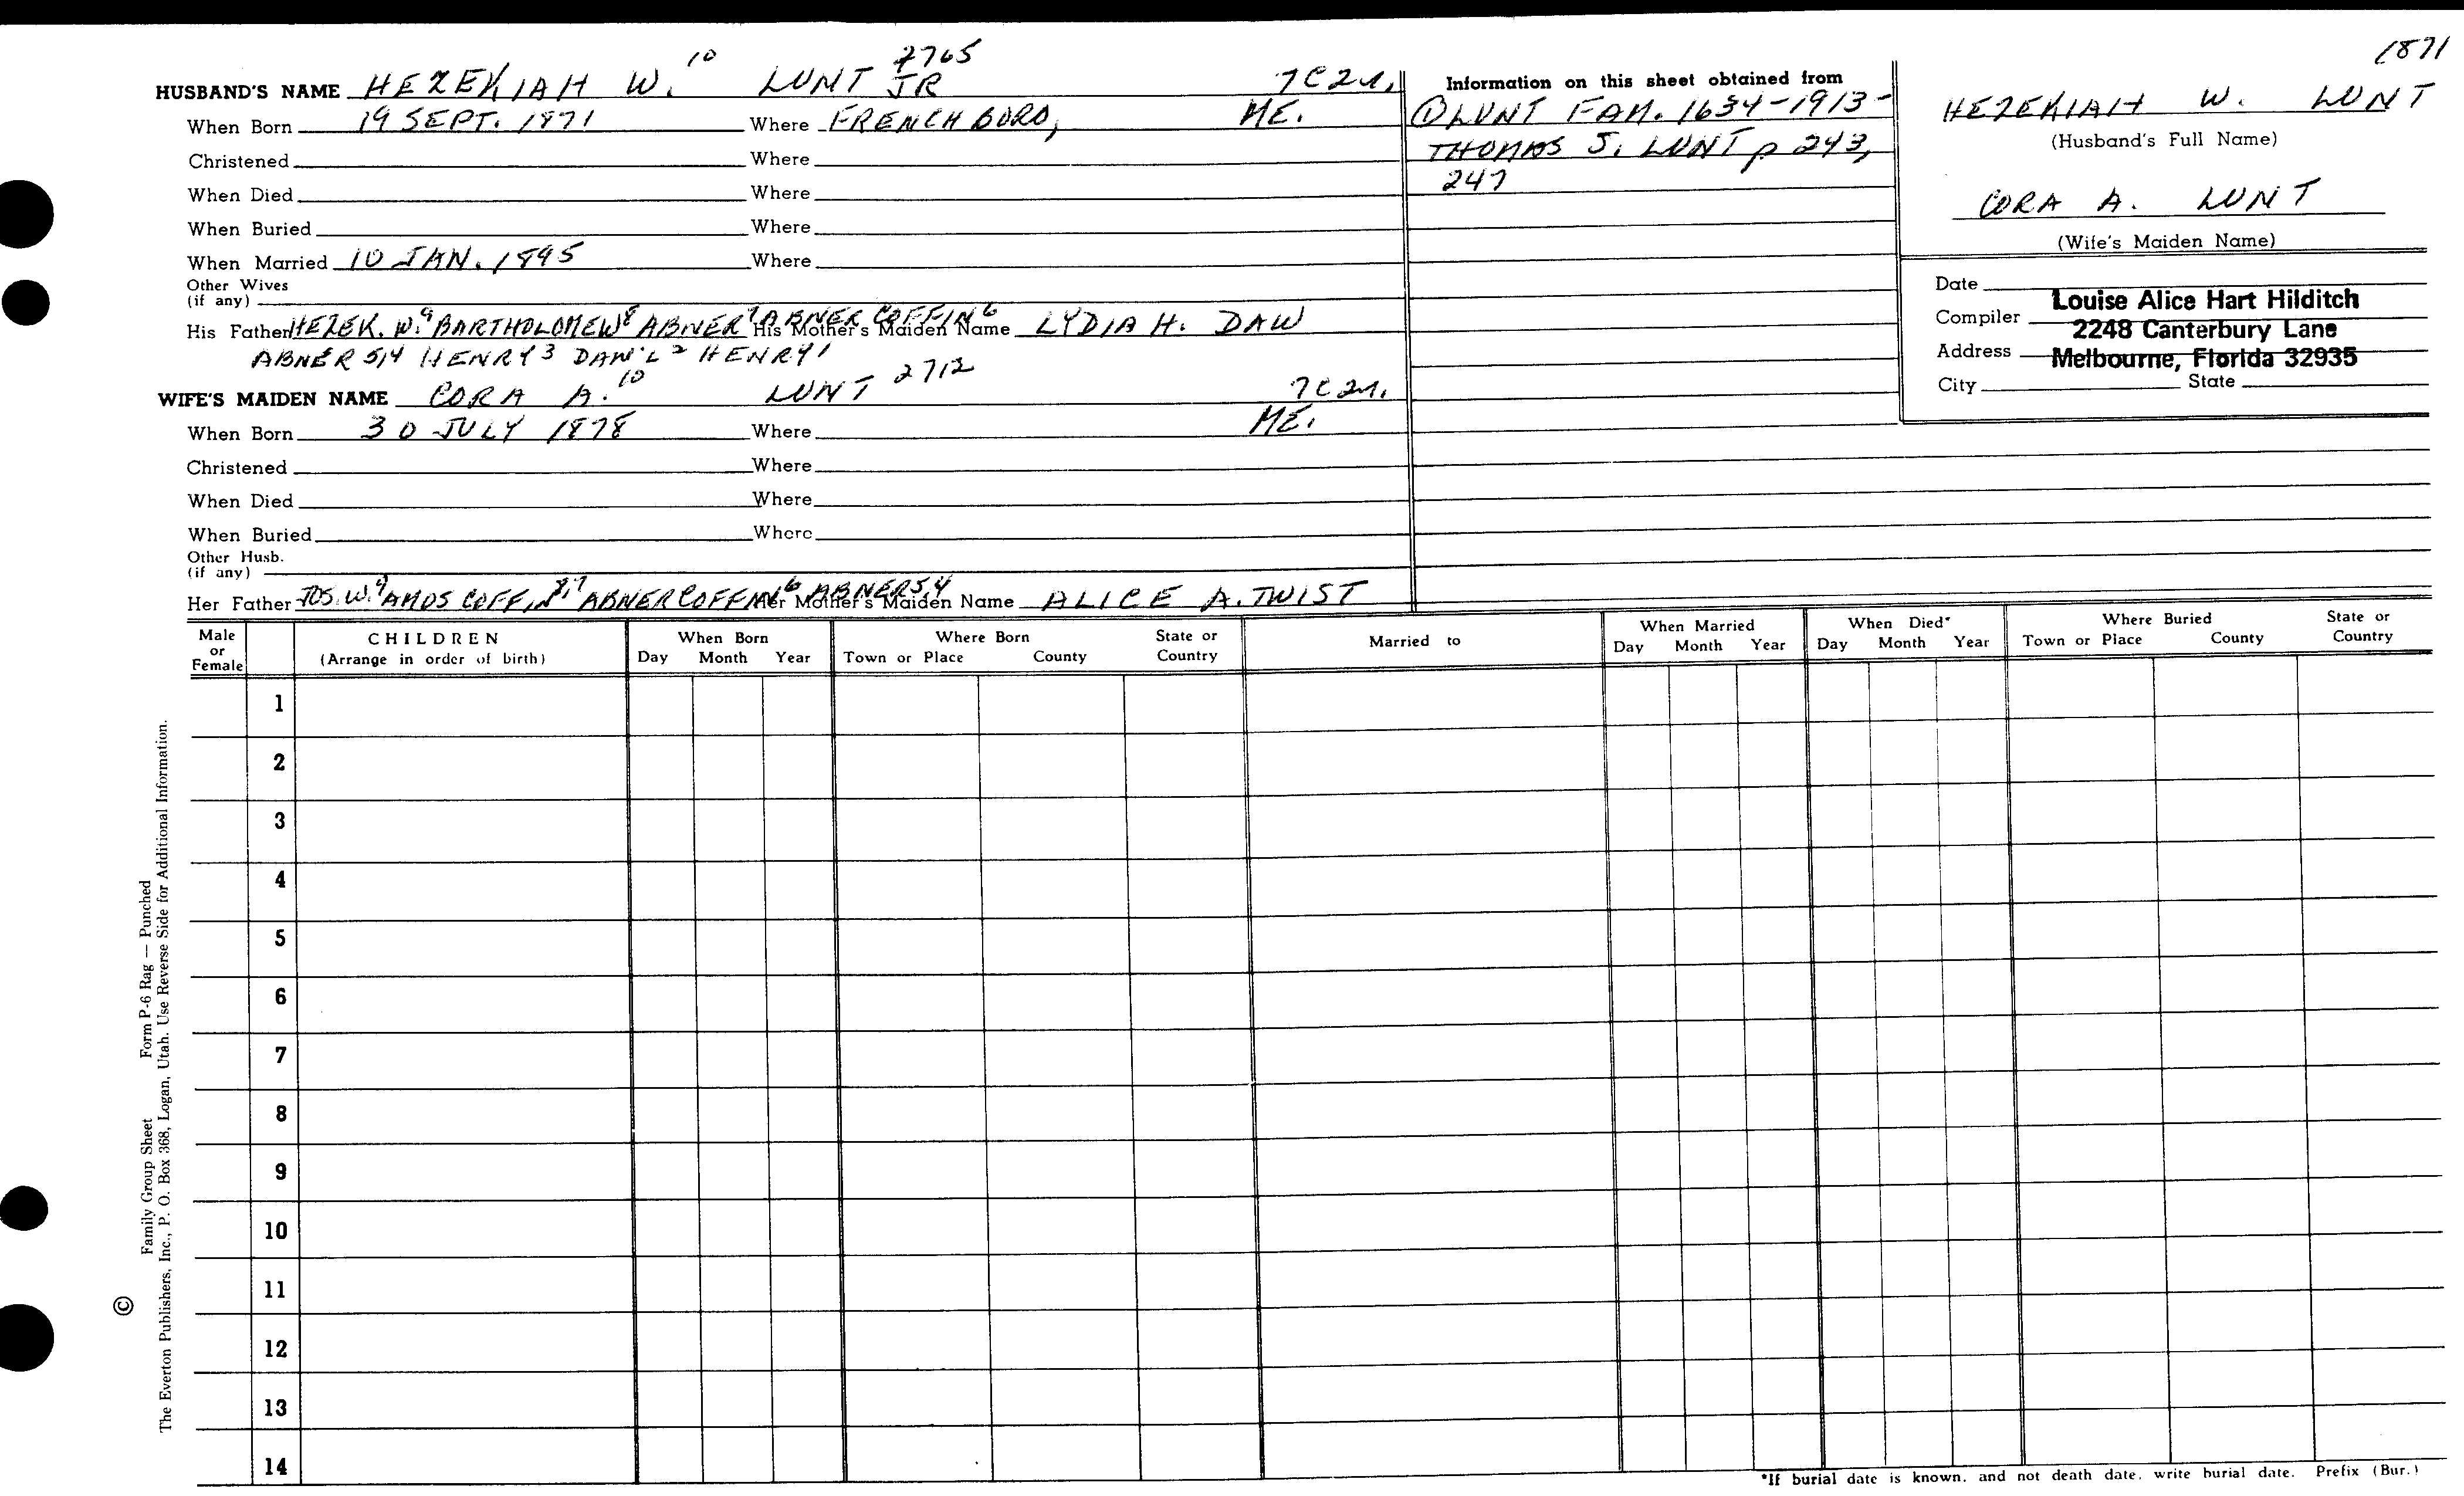 1871
2765
HUSBAND'S NAME HEZEKIAH W. 10 LUNT JR 7C2R.
When Born 19 SEPT. 1871 Where FRENCHBORO, ME.
Christened Where
When Died Where
When Buried Where
When Married 10 JAN. 1895 Where
Other Wives
(if any)
His Father HEZEK. W.9 BARTHOLOMEW8 ABNER7 ABNER COFFIN6 His Mother's Maiden Name LYDIA H. DAW
ABNER 5,4 HENRY3 DAN'L2 HENRY1
WIFE'S MAIDEN NAME CORA A.10 LUNT 2712 7C2R.
When Born 30 JULY 1878 Where ME.
Christened Where
When Died Where
When Buried Where
Other Husb.
(if any)
Her Father JOS. W.9 AMOS COFFIN8,7 ABNER COFFIN6 ABNER5,4 Her Mother's Maiden Name ALICE A. TWIST
Information on this sheet obtained from
① LUNT FAM. 1634-1913-
THOMAS S. LUNT p 243,
247
HEZEKIAH W. LUNT
(Husband's Full Name)
CORA A. LUNT
(Wife's Maiden Name)
Date
Compiler Louise Alice Hart Hilditch
2248 Canterbury Lane
Address Melbourne, Florida 32935
City State
Male or Female
CHILDREN
(Arrange in order of birth)
When Born
Day Month Year
Where Born
Town or Place County
State or Country
Married to
When Married
Day Month Year
When Died*
Day Month Year
Where Buried
Town or Place County
State or Country
1
2
3
4
5
6
7
8
9
10
11
12
13
14
*If burial date is known, and not death date, write burial date. Prefix (Bur.)
Family Group Sheet Form P-6 Rag — Punched
© The Everton Publishers, Inc., P. O. Box 368, Logan, Utah. Use Reverse Side for Additional Information.